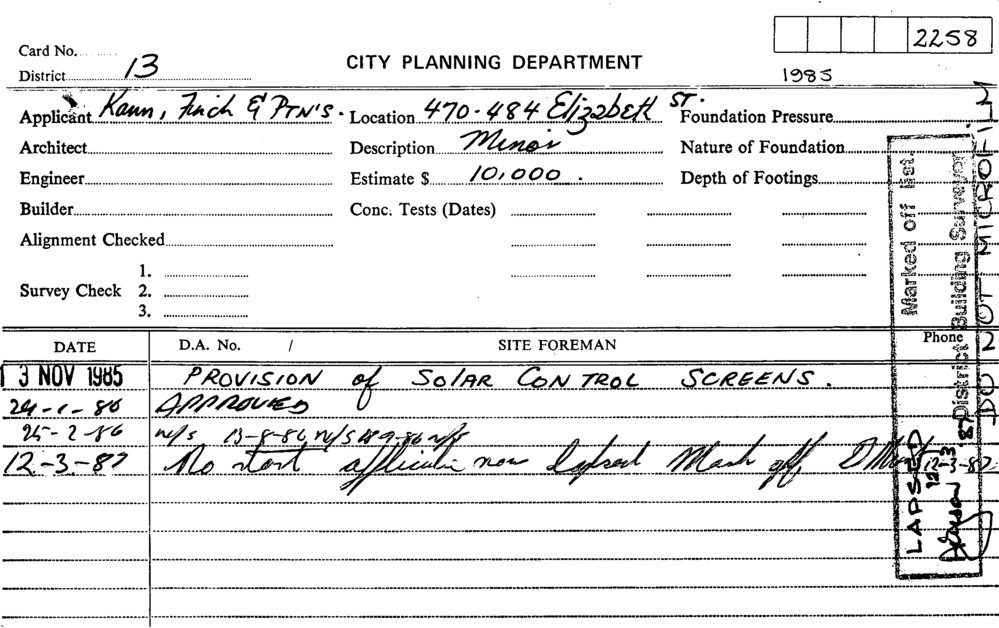 2258
Card No.
District 13
CITY PLANNING DEPARTMENT
1985
Applicant Kann, Finch & PTN'S. Location 470-484 Elizabeth ST. Foundation Pressure
Architect Description Minor Nature of Foundation
Engineer Estimate $ 10,000. Depth of Footings
Builder Conc. Tests (Dates)
Alignment Checked
1.
Survey Check 2.
3.
DATE D.A. No. / SITE FOREMAN Phone
13 NOV 1985 PROVISION of SOLAR CONTROL SCREENS.
24-1-86 APPROVED
25-2-86 n/s 13-8-86 n/s 18-9-86 n/s
12-3-87 No start application now lapsed Mark off 12-3-87
Marked off list.
District Building Surveyor
LAPSED
DO NOT MICROFILM